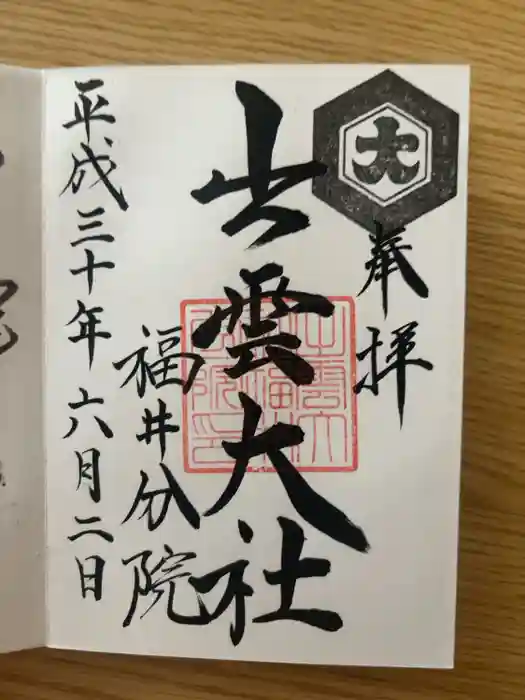 奉拝
大
出雲大社
福井分院
平成三十年六月二日